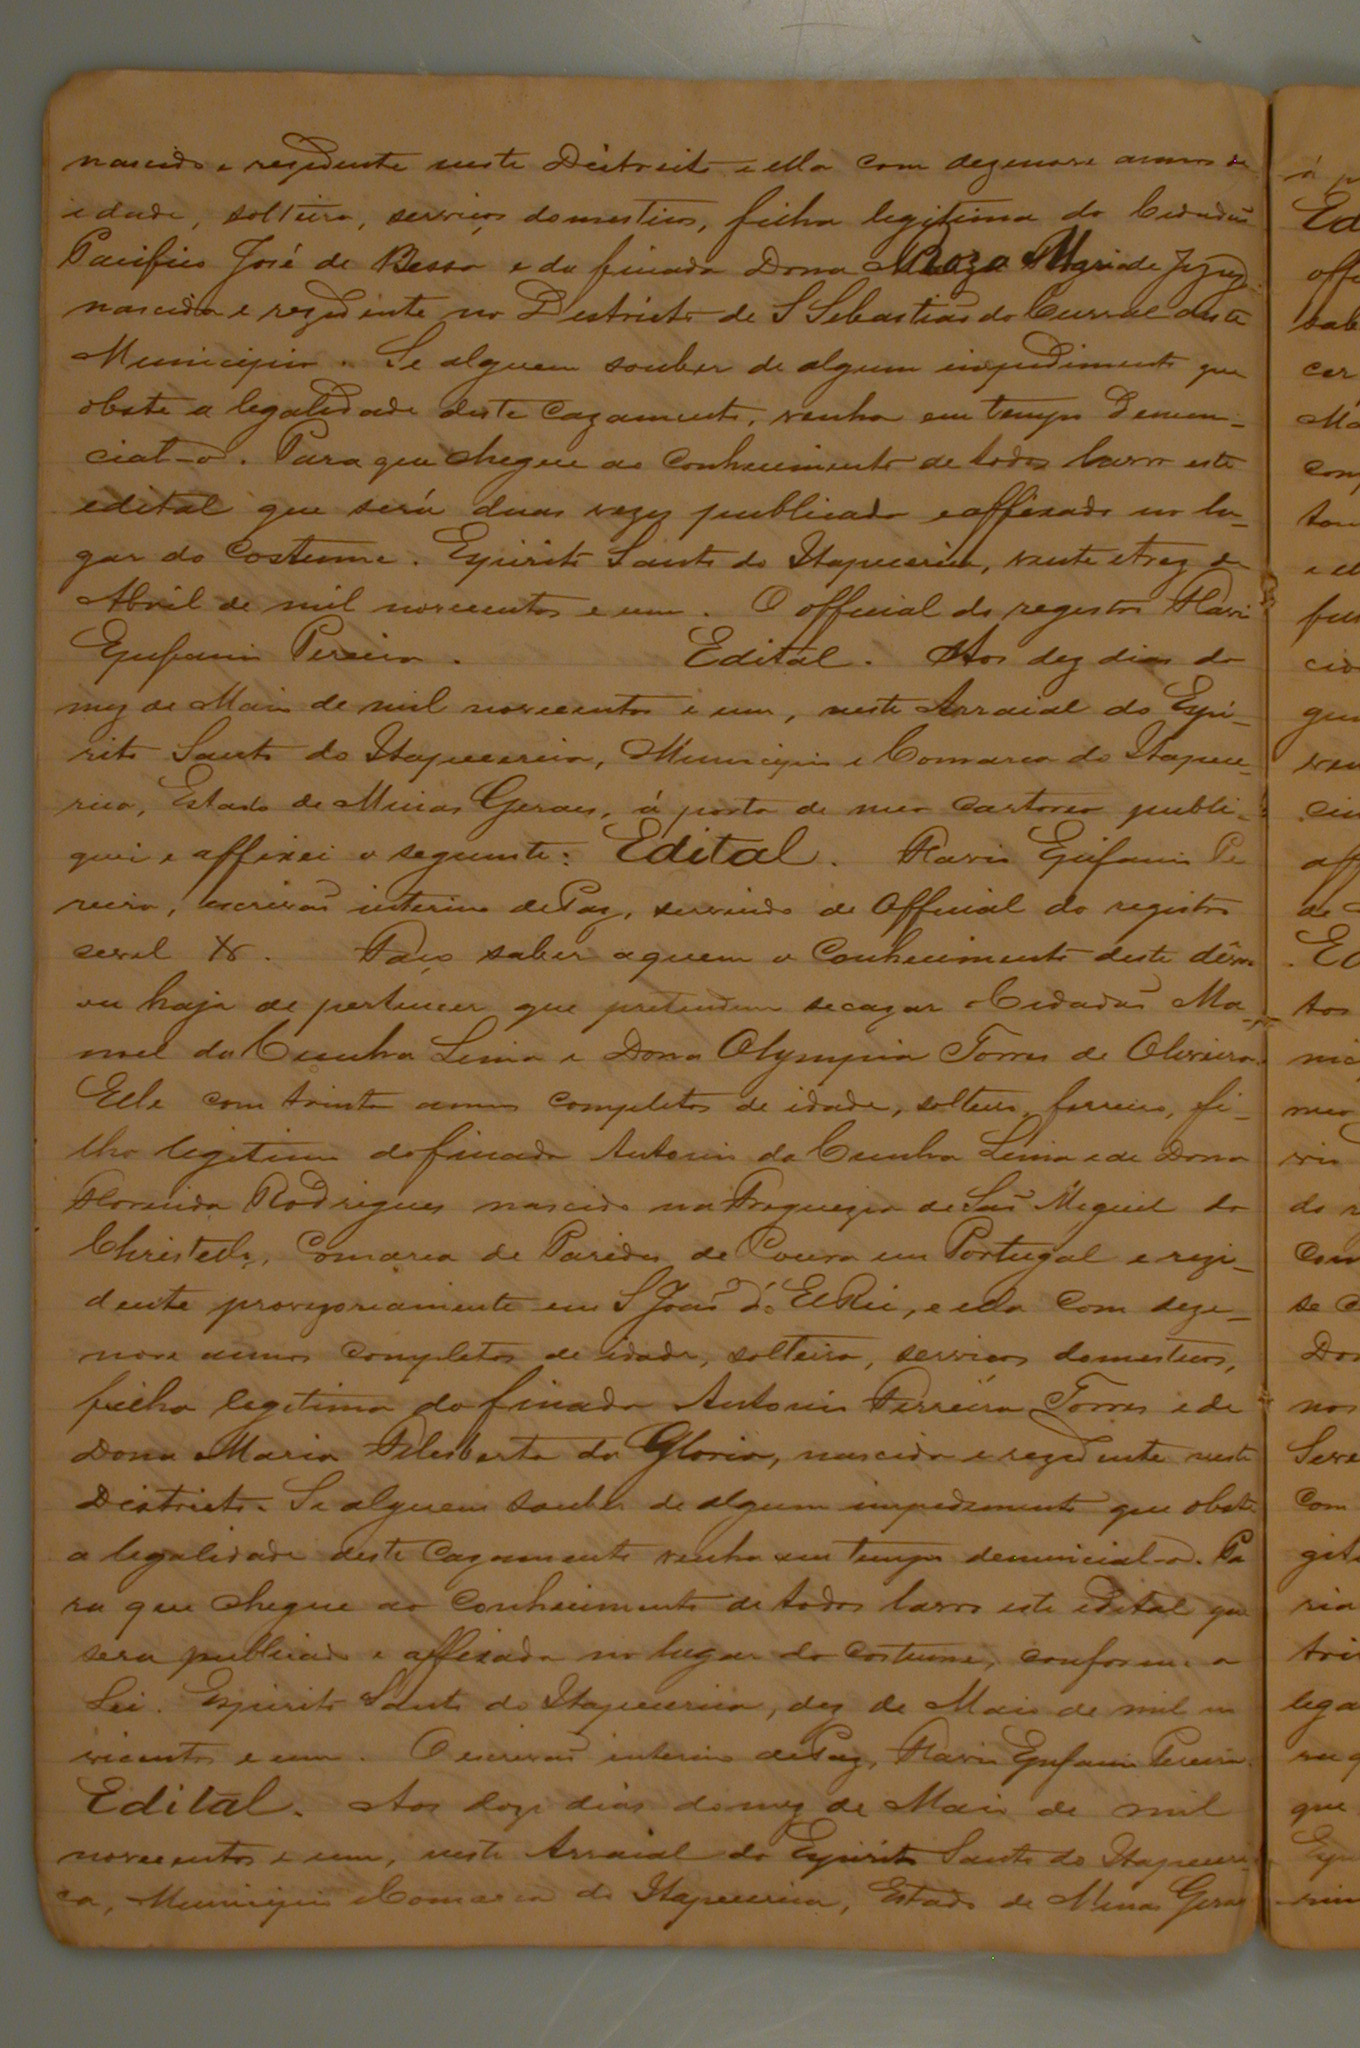 nascido e rezidente neste Districto e ella com dezenove annos de
idade, solteira, serviços domesticos, filha legitima do Cidadão
Pacifico José de Bessa e da finada Dona Roza Maria de Jezus
nascida e rezidente no Districto de S Sebastião do Curral deste
Municipio. Se alguem souber de algum impedimento que
obste a legalidade deste cazamento, venha em tempo denun-
cial-o. Para que chegue ao conhecimento de todos lavro este
edital que será duas vezes publicado e affixado no lu-
gar do costume. Espirito Santo do Itapecerica, vinte e trez de
Abril de mil novecentos e um. O official do registro Flavio
Eufanio Pereira. Edital. Aos dez dias do
mez de Maio de mil novecentos e um, neste Arraial do Espi-
rito Santo do Itapecerica, Municipio e Comarca do Itapece-
rica, Estado de Minas Geraes, á porta de meo cartorio publi-
quei e affixei o seguinte: Edital. Flavio Eufanio Pe
reira, escrivão interino de Paz, servindo de Official do registro
sevel &. Faço saber a quem o conhecimento deste dêva
ou haja de pertencer que pretendem se cazar o Cidadão Ma-
noel da Cunha Lima e Dona Olympia Torres de Oliveira.
Elle com trinta annos completos de idade, solteiro, ferreiro, fi-
lho legitimo do finado Antonio da Cunha Lima e de Dona
Florinda Rodrigues nascido na Freguezia de São Miguel do
Christello, Comarca de Paredes de Coura em Portugal e rezi-
dente provizoriamente em S João d'El Rei, e ella com deze-
nove annos completos de idade, solteira, serviços domesticos,
filha legitima do finado Antonio Ferreira Torres e de
Dona Maria Filisberta da Gloria, nascida e rezidente neste
Districto. Se alguem souber de algum impedimento que obste
a legalidade deste cazamento venha em tempo denuncial-o. Pa
ra que chegue ao conhecimento de todos lavro este edital que
sera publicado e affixado no lugar do costume, conforme a
Lei. Espirito Santo do Itapecerica, dez de Maio de mil no
vicentos e um. O escrivão interino de Paz, Flavio Eufanio Pereira.
Edital. Aos doze dias do mez de Maio de mil
novecentos e um, neste Arraial do Espirito Santo do Itapeceri
ca, Municipio e Comarca do Itapecerica, Estado de Minas Geraes